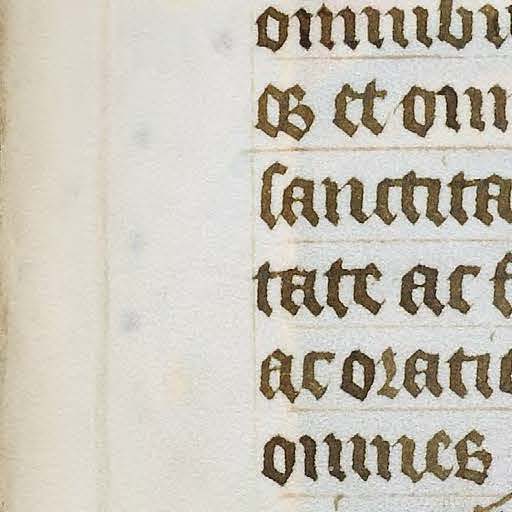 omnibu
qꝫ et om
sanctita
tate ac b
ac oratio
omnes